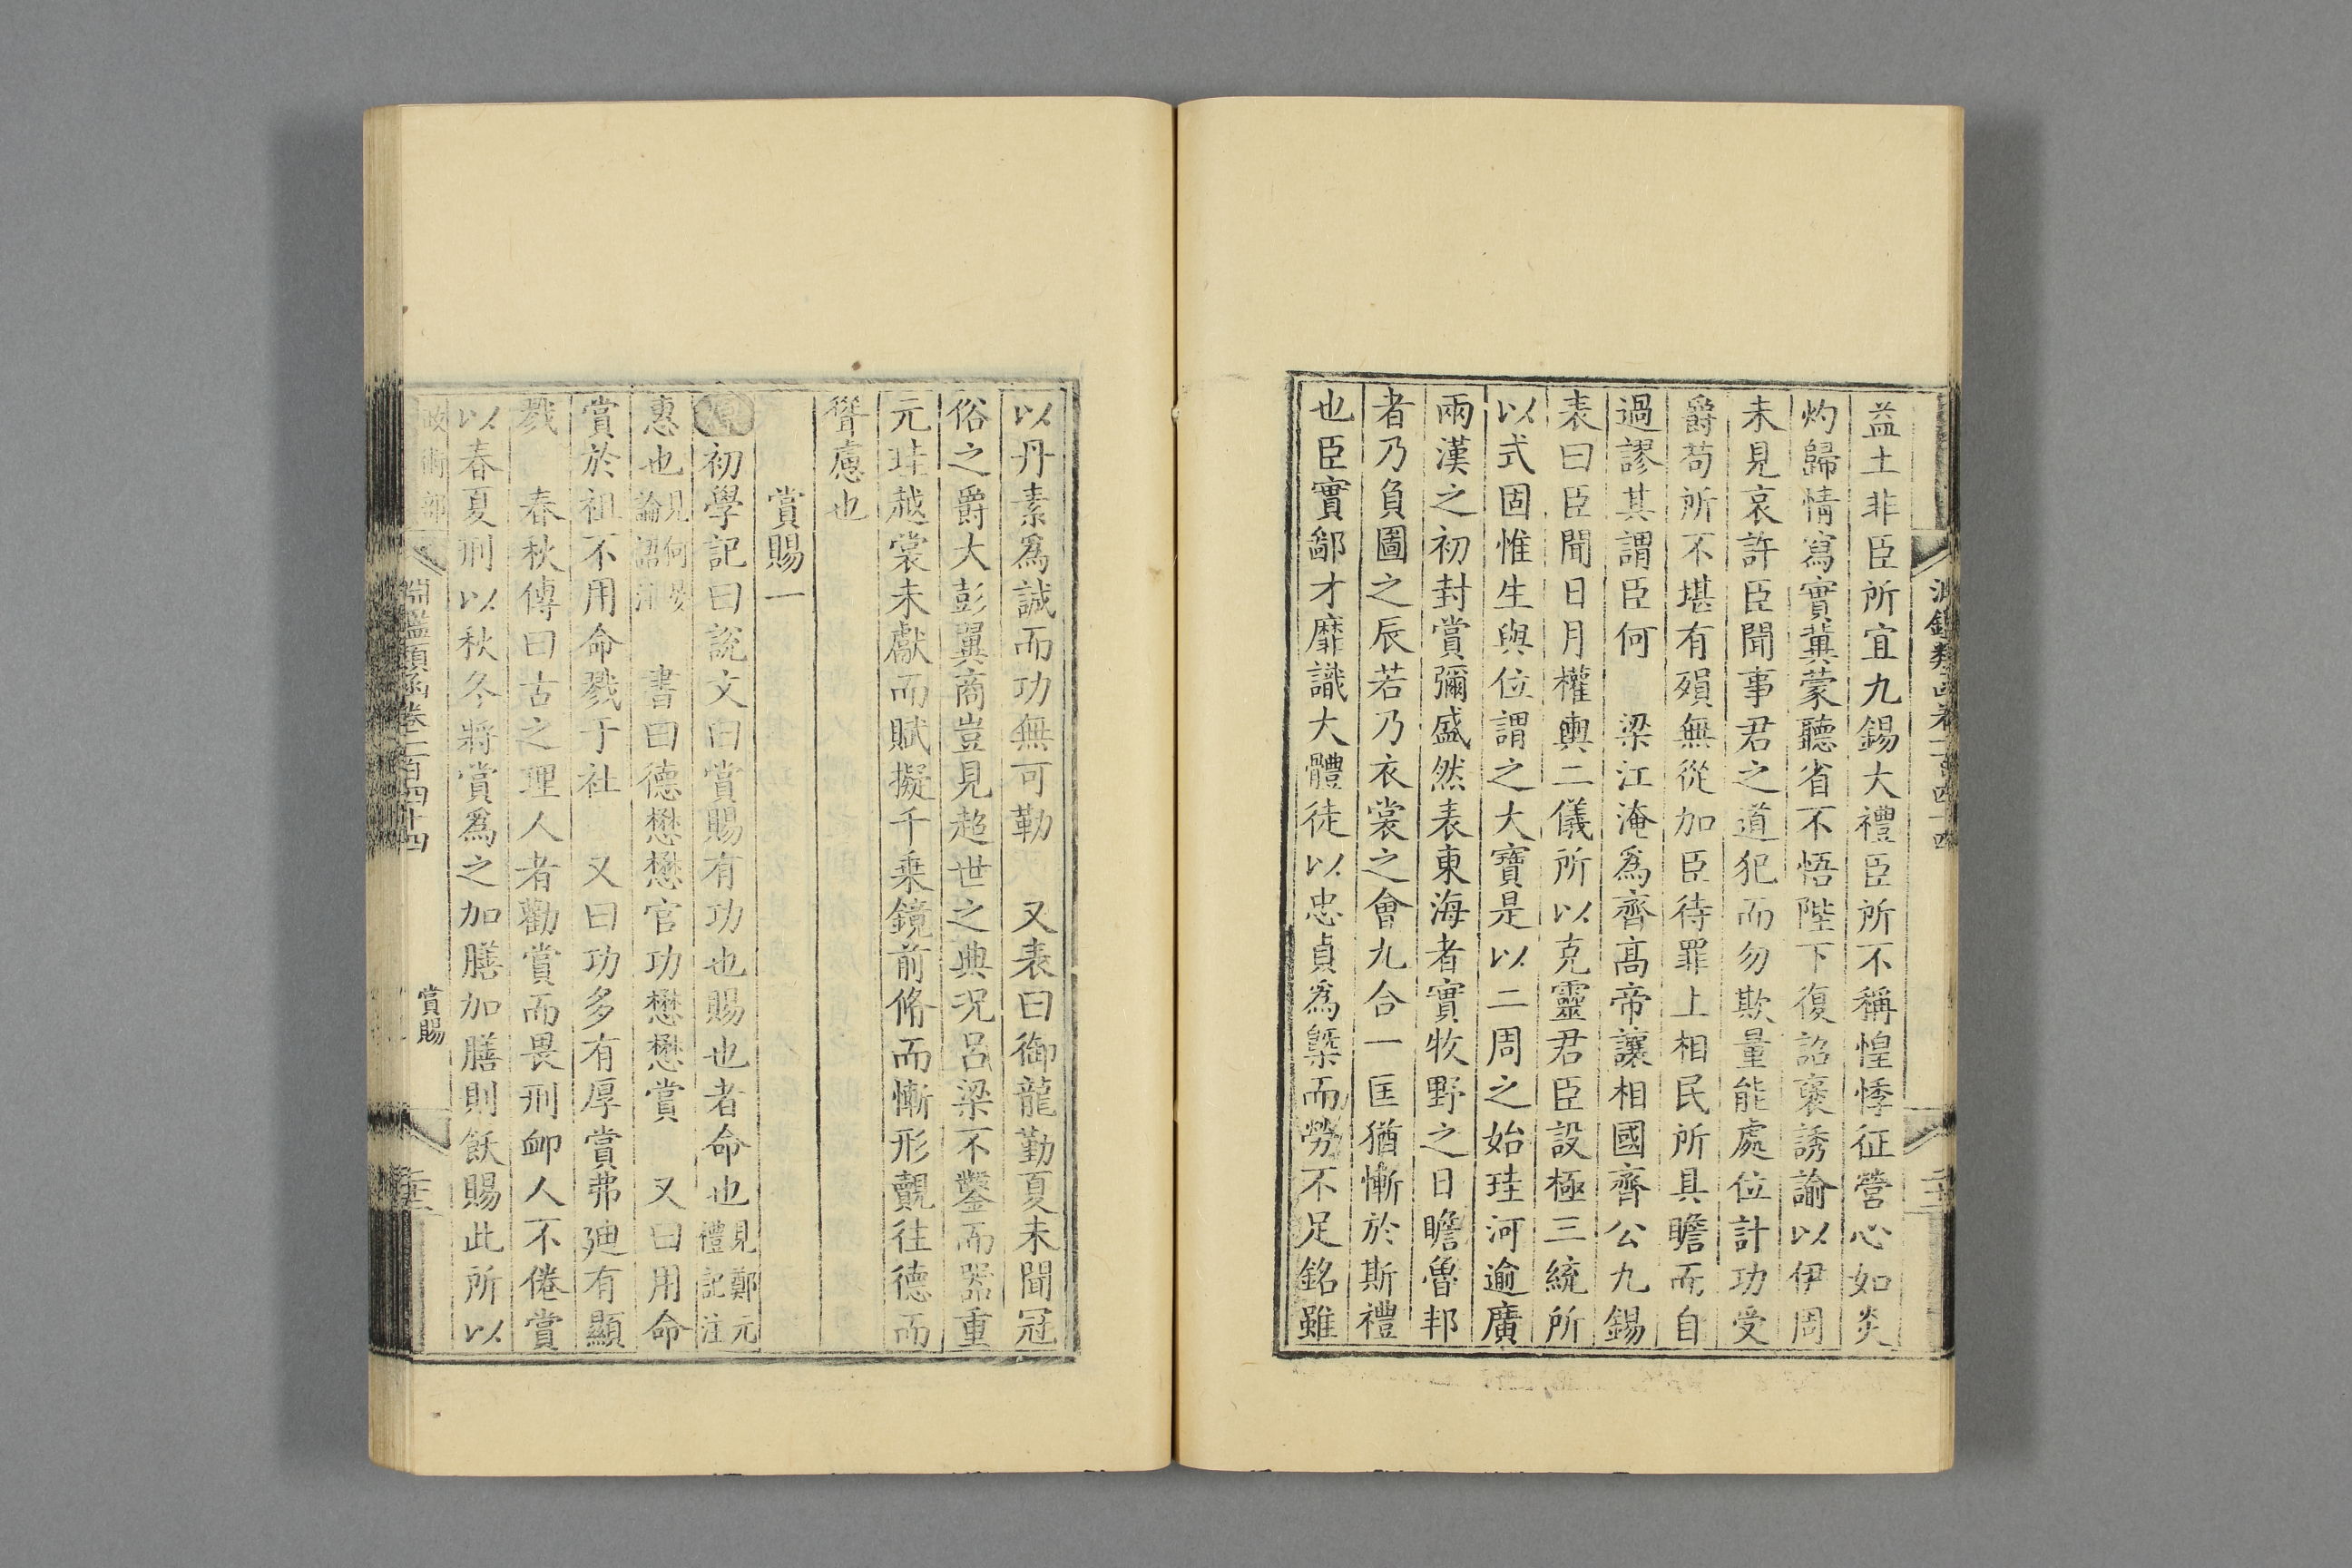 益土非臣所宜九錫大禮臣所不稱惶悸征營心如炎
灼歸情寫實冀蒙聽省不悟陛下復詔褒誘諭以伊周
未見哀許臣聞事君之道犯而勿欺量能處位計功受
爵苟所不堪有殞無從加臣待罪上相民所具瞻而自
過謬其謂臣何　梁江淹爲齊高帝讓相國齊公九錫
表曰臣聞日月權輿二儀所以克靈君臣設極三統所
以式固惟生與位謂之大寶是以二周之始珪河逾廣
兩漢之初封賞彌盛然表東海者實牧野之日瞻魯邦
者乃負圖之辰若乃衣裳之會九合一匡猶慚於斯禮
也臣實鄙才靡識大體徒以忠貞爲槩而勞不足銘雖
以丹素爲誠而功無可勒　又表曰御龍勤夏未聞冠
俗之爵大彭翼商豈見超世之典况呂梁不鑿而器重
元珪越裳未獻而賦擬千乗鏡前脩而慚形覿往德而
聳慮也
賞賜一
初學記曰說文曰賞賜有功也賜也者命也見鄭元禮記注
惠也見何晏論語注　書曰德懋懋官功懋懋賞　又曰用命
賞於祖不用命戮于社　又曰功多有厚賞弗廸有顯
戮　春秋傳曰古之理人者勸賞而畏刑卹人不倦賞
以春夏刑以秋冬將賞爲之加膳加膳則飫賜此所以
政術部　淵鑑類函卷一百四十四　賞賜